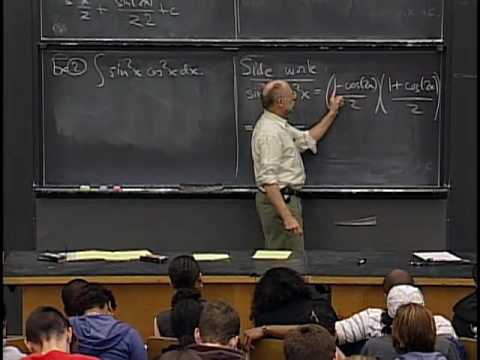 x/2 + sin(2x)/2·2 + c
Ex 2) ∫ sin²x cos²x dx.
Side work
sin²x cos²x = (1 - cos(2x)/2)(1 + cos(2x)/2)
=